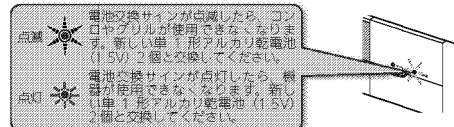 電池交換サインが点滅したら、コン
ロやグリルが使用できなくなりま
す。新しい単1形アルカリ乾電池
(1.5V) 2個と交換してください。
点滅
電池交換サインが点灯したら、機
器が使用できなくなります。新し
い単1形アルカリ乾電池 (1.5V)
2個と交換してください。
点灯